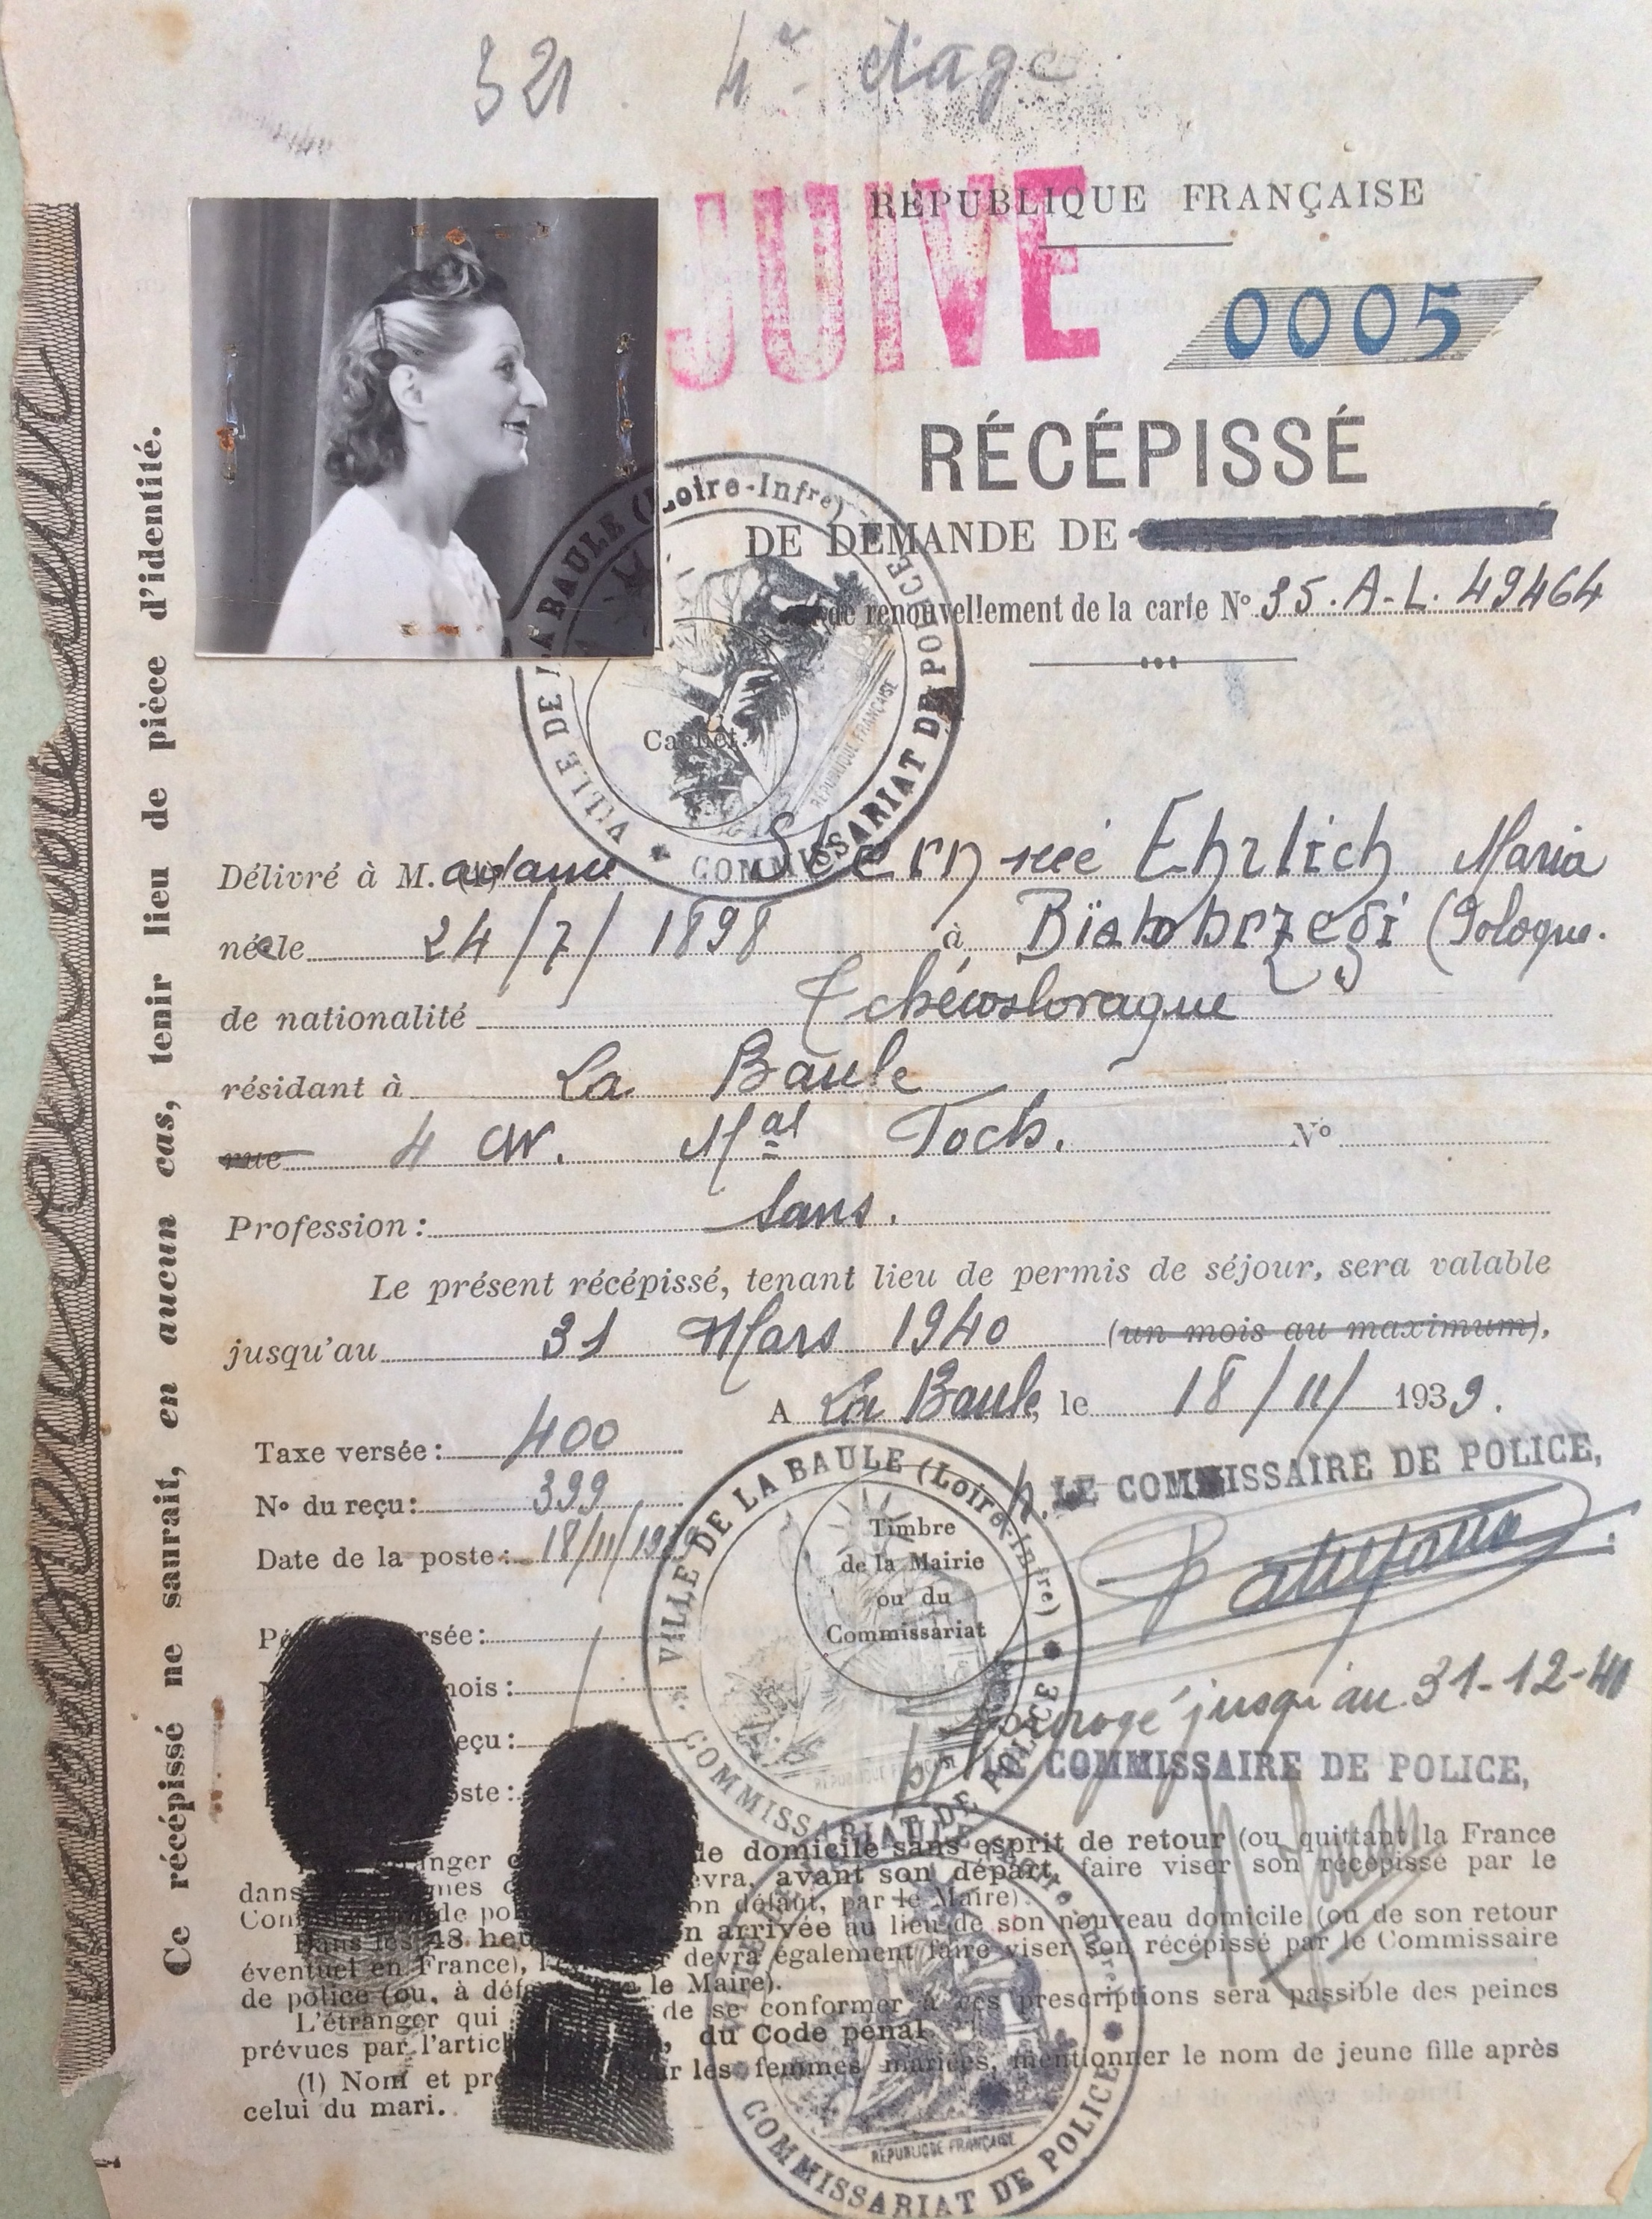 321. 4e étage
JUIVE
RÉPUBLIQUE FRANÇAISE
0005
RÉCÉPISSÉ
DE DEMANDE DE
de renouvellement de la carte No 35.A-L. 49464
VILLE DE LA BAULE (Loire-Infre)
COMMISSARIAT DE POLICE
RÉPUBLIQUE FRANÇAISE
Cachet.
Ce récépissé ne saurait, en aucun cas, tenir lieu de pièce d'identité.
Délivré à M. adame Stern née Ehrlich Maria
née le 24/7/1898 à (Pologne.
de nationalité Tchécoslovaque
résidant à La Baule
rue 4 Mal Foch. No
Profession: Sans.
Le présent récépissé, tenant lieu de permis de séjour, sera valable
jusqu'au 31 Mars 1940 (un mois au maximum),
A La Baule, le 18/11/1939.
Taxe versée: 400
No du reçu: 399
Date de la poste: 18/11/19
P. LE COMMISSAIRE DE POLICE,
VILLE DE LA BAULE (Loire-Infre)
COMMISSARIAT DE POLICE
Timbre
de la Mairie
ou du
Commissariat
rsée:
mois:
eçu:
oste:
Prorogé jusqu'au 31-12-40
LE COMMISSAIRE DE POLICE,
anger de domicile sans esprit de retour (ou quittant la France
dans mes evra, avant son départ, faire viser son récépissé par le
Com de pol on défaut, par le Maire).
Dans les 48 heu n arrivée au lieu de son nouveau domicile (ou de son retour
éventuel en France), l' r devra également faire viser son récépissé par le Commissaire
de police (ou, à déf le Maire).
L'étranger qui de se conformer à ces prescriptions sera passible des peines
prévues par l'articl , du Code pénal.
(1) Nom et pr ur les femmes mariées, mentionner le nom de jeune fille après
celui du mari.
COMMISSARIAT DE POLICE
RÉPUBLIQUE FRANÇAISE